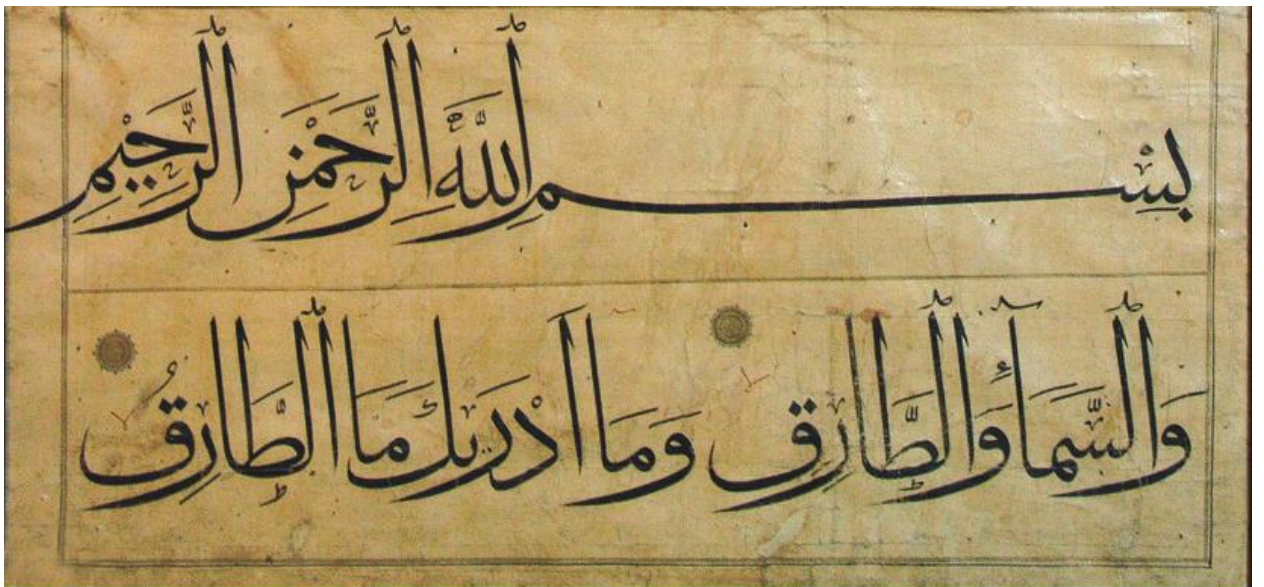 بِسْمِ اللَّهِ الرَّحْمَنِ الرَّحِيمِ
وَالسَّمَاءِ وَالطَّارِقِ وَمَا أَدْرَيكَ مَا الطَّارِقُ